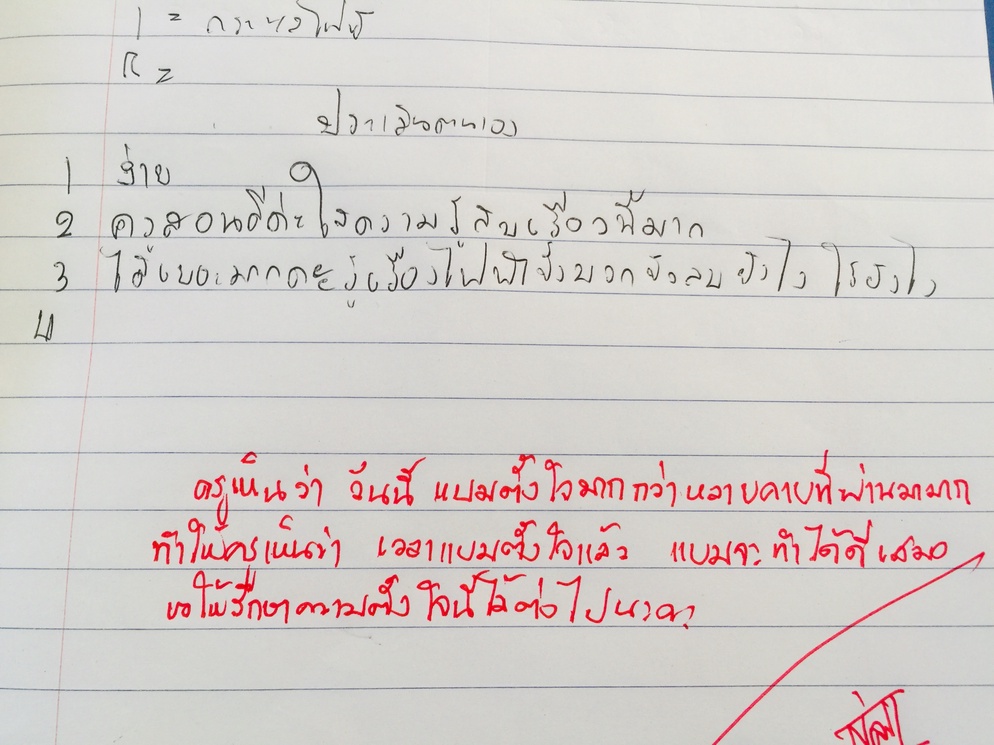 I = กระแสไฟฟ้า
R =
ประเมินตนเอง
1 ง่าย
2 ครูสอนดีค่ะใส่ความรู้สึกเรื่องนี้มาก
3 ได้เยอะมากค่ะรู้เรื่องไฟฟ้าขั้วบวกขั้วลบยังไง ไรยังไง
4
ครูเห็นว่า วันนี้ แบมตั้งใจมากกว่าหลายคาบที่ผ่านมามาก
ทำให้ครูเห็นว่า เวลาแบมตั้งใจแล้ว แบมจะทำได้ดีเสมอ
ขอให้รักษาความตั้งใจนี้ไว้ต่อไปนะคะ